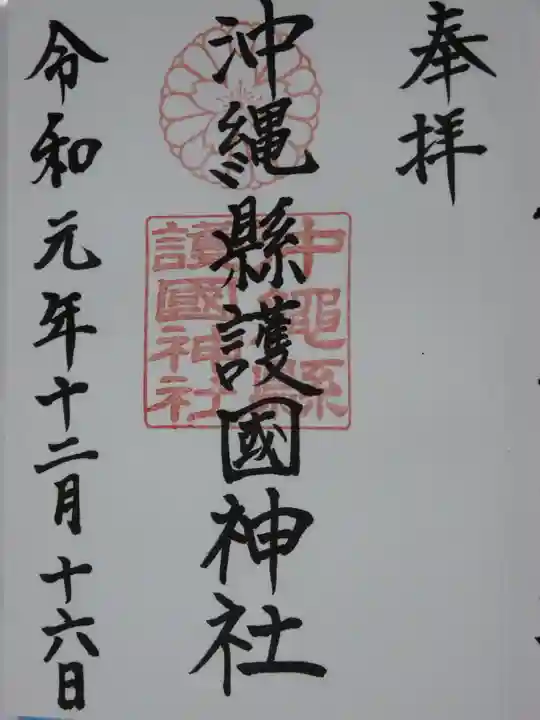 奉拝
沖縄縣護國神社
沖繩縣護國神社
令和元年十二月十六日